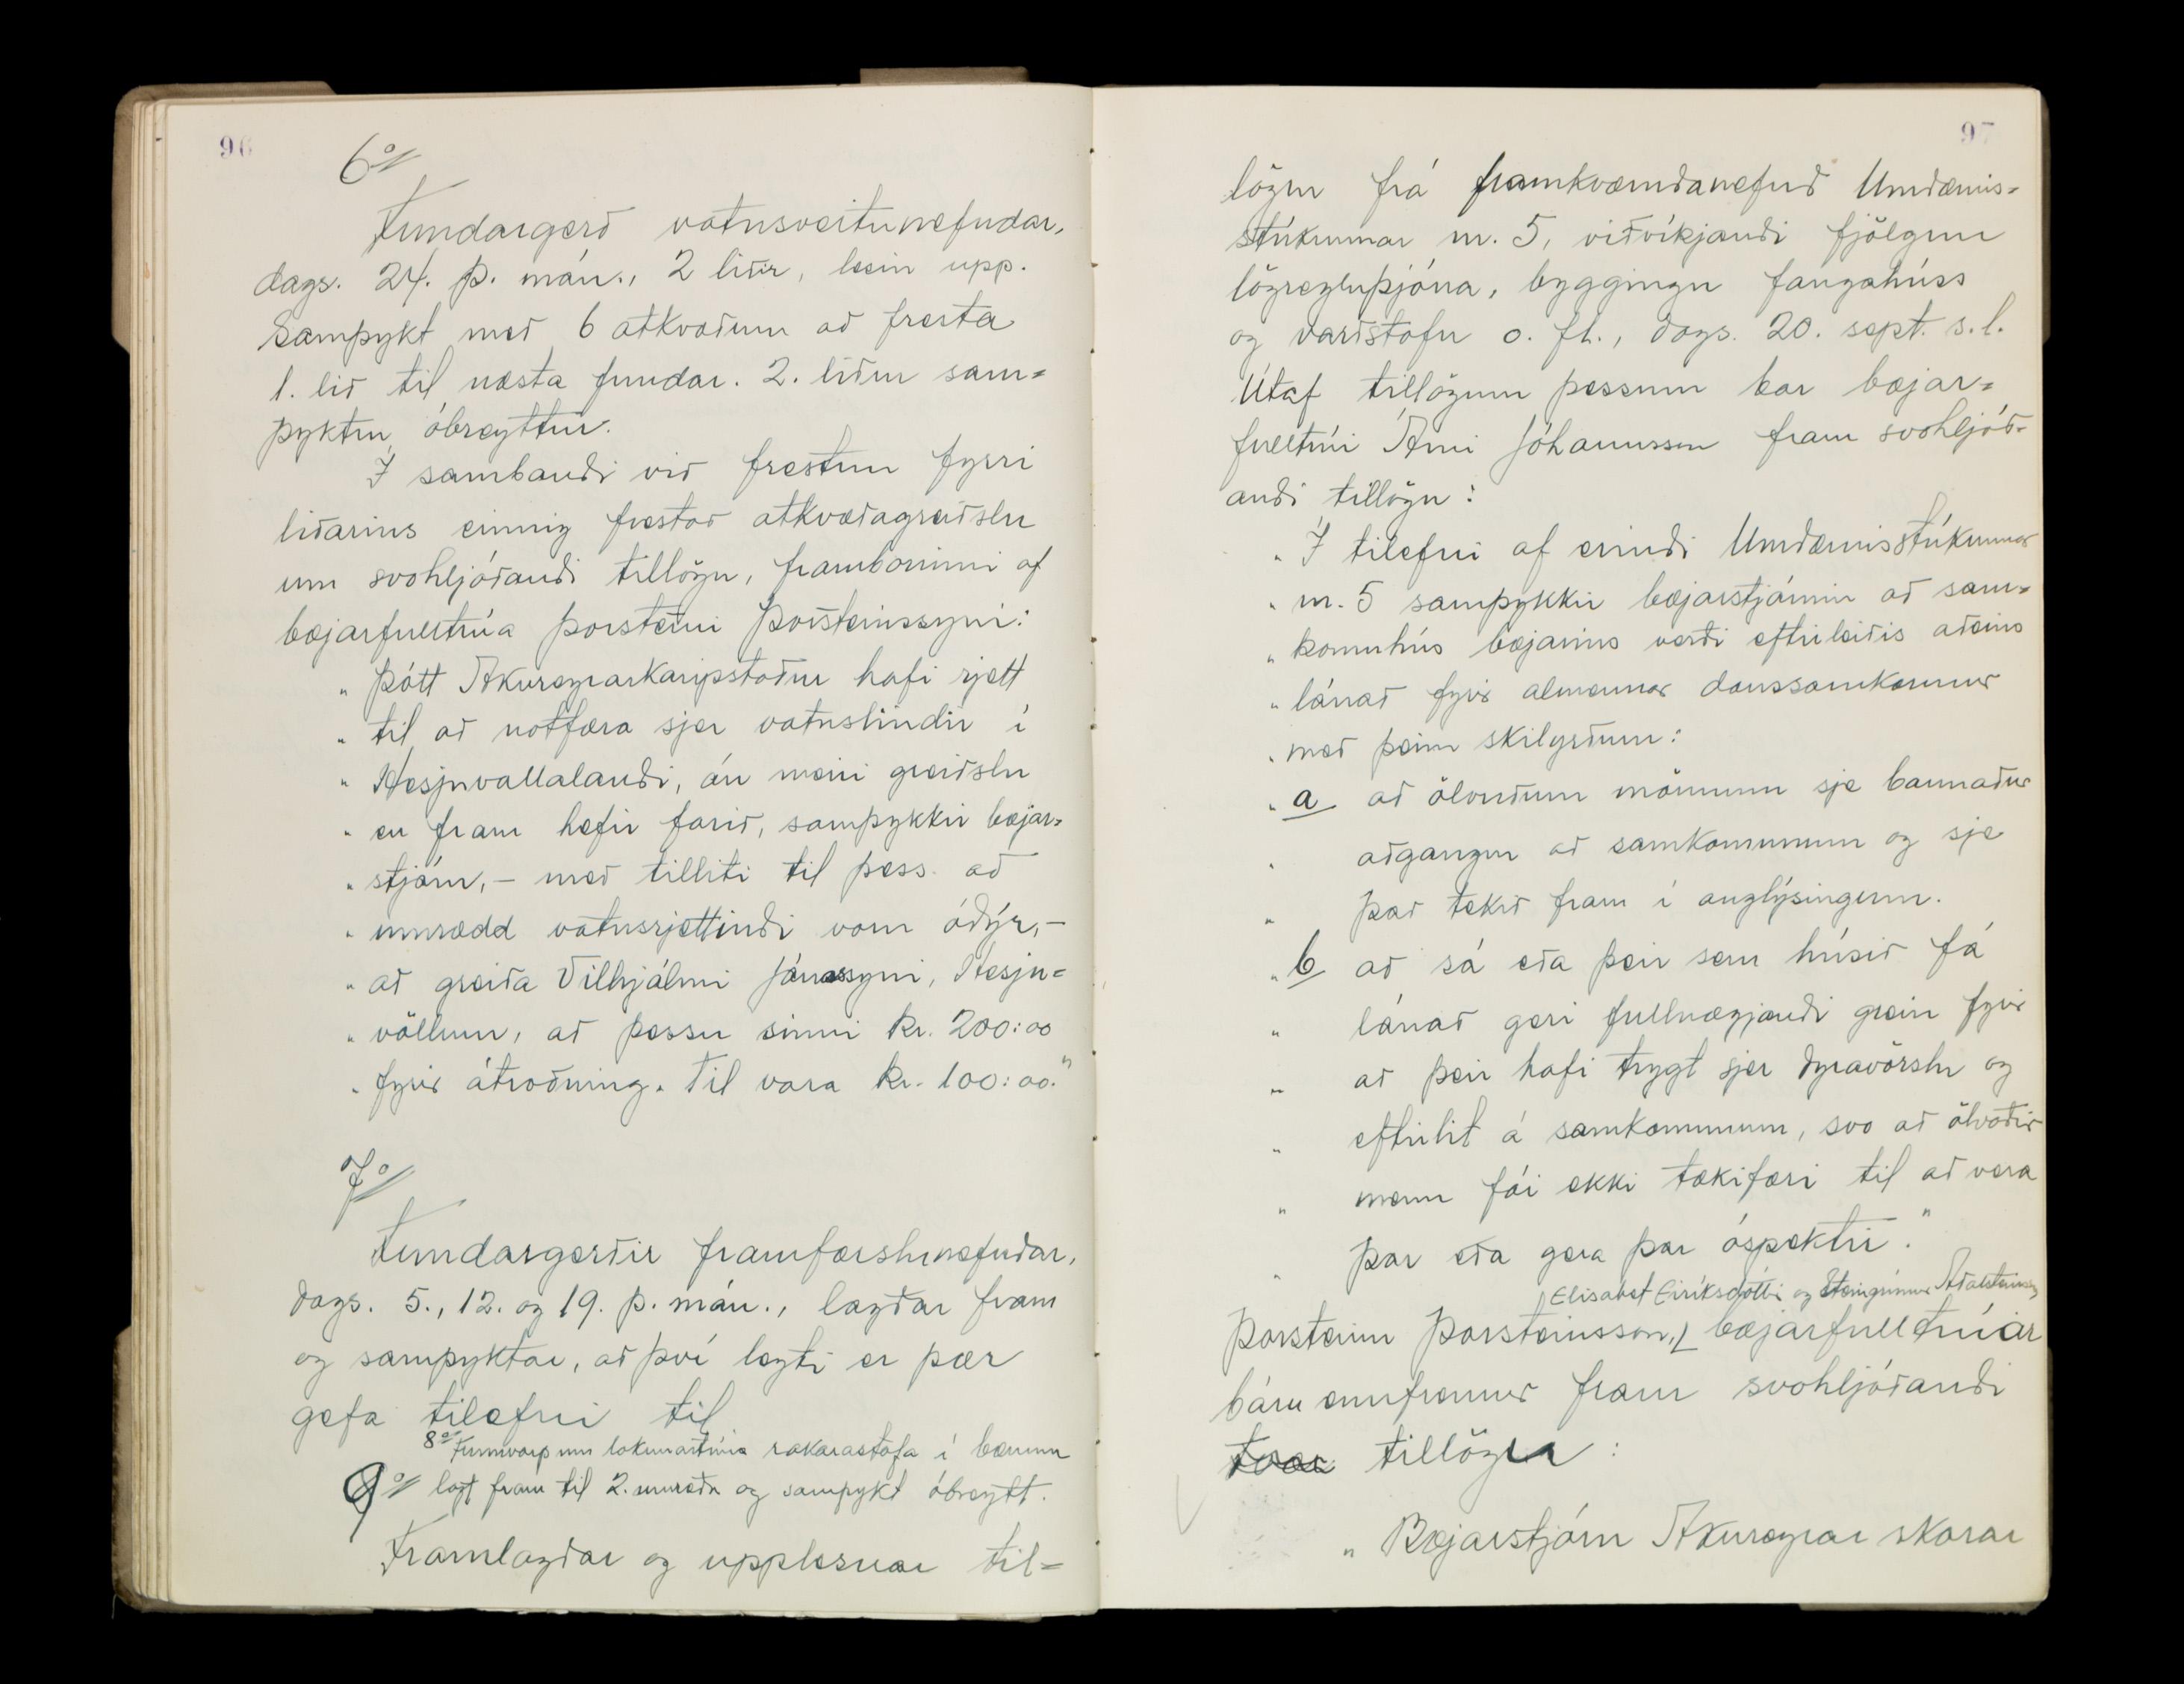 96
6°/
Fundargerð vatnsveitunefndar,
dags. 24. þ. mán., 2 liðir, lesin upp.
Samþykt með 6 atkvæðum að fresta
1. lið til næsta fundar. 2. liður sam=
þyktur óbreyttur.
Í sambandi við frestun fyrri
liðarins einnig frestað atkvæðagreiðslu
um svohljóðandi tillögu, framborinni af
bæjarfulltrúa Þorsteini Þorsteinssyni:
„ Þótt Akureyrarkaupstaður hafi rjett
„ til að notfæra sjer vatnslindir í
„ Hesjuvallalandi, án meiri greiðslu
„ en fram hefir farið, samþykkir bæjar=
„ stjórn, – með tilliti til þess að
„ umrædd vatnsrjettindi voru ódýr, –
„ að greiða Vilhjálmi Jónassyni, Hesju=
„ völlum, að þessu sinni kr. 200:00
„ fyrir átroðning. Til vara kr. 100:00."
7°/
Fundargerðir framfærslunefndar,
dags. 5., 12. og 19. þ. mán., lagðar fram
og samþyktar, að því leyti er þær
gefa tilefni til
8°/ Frumvarp um lokunartíma rakarastofa í bænum
9°/ lagt fram til 2. umræðu og samþykt óbreytt.
Framlagðar og upplesnar til=
97
lögur frá framkvæmdanefnd Umdæmis=
stúkunnar nr. 5, viðvíkjandi fjölgun
lögregluþjóna, byggingu fangahúss
og varðstofu o. fl., dags. 20. sept. s.l.
Útaf tillögum þessum bar bæjar=
fulltrúi Árni Jóhannsson fram svohljóð=
andi tillögu:
„ Í tilefni af erindi Umdæmisstúkunnar
„ nr. 5 samþykkir bæjarstjórnin að sam=
„ komuhús bæjarins verði eftirleiðis aðeins
„ lánað fyrir almennar danssamkomur
„ með þeim skilyrðum:
„ a að ölvuðum mönnum sje bannaður
„ aðgangur að samkomunum og sje
„ það tekið fram í auglýsingum.
„ b að sá eða þeir sem húsið fá
„ lánað geri fullnægjandi grein fyrir
„ að þeir hafi trygt sjer dyravörslu og
„ eftirlit á samkomunum, svo að ölvaðir
„ menn fái ekki tækifæri til að vera
„ þar eða gera þar óspektir."
Elísabet Eiríksdóttir og Steingrímur Aðalsteinsson
Þorsteinn Þorsteinsson, bæjarfulltrúar
báru ennfremur fram svohljóðandi
tvær tillögu:
„ Bæjarstjórn Akureyrar skorar